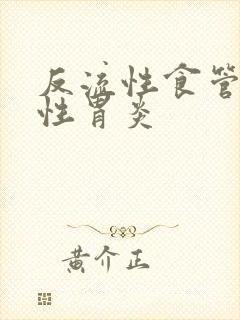 反流性食管
性胃炎
黄介正